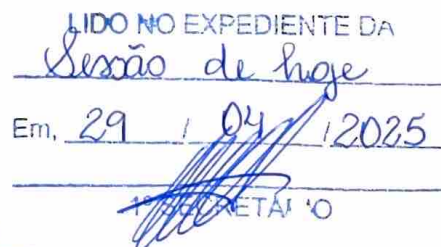 LIDO NO EXPEDIENTE DA
Sessão de hoje
Em, 29 / 04 / 2025
1º SECRETÁRIO